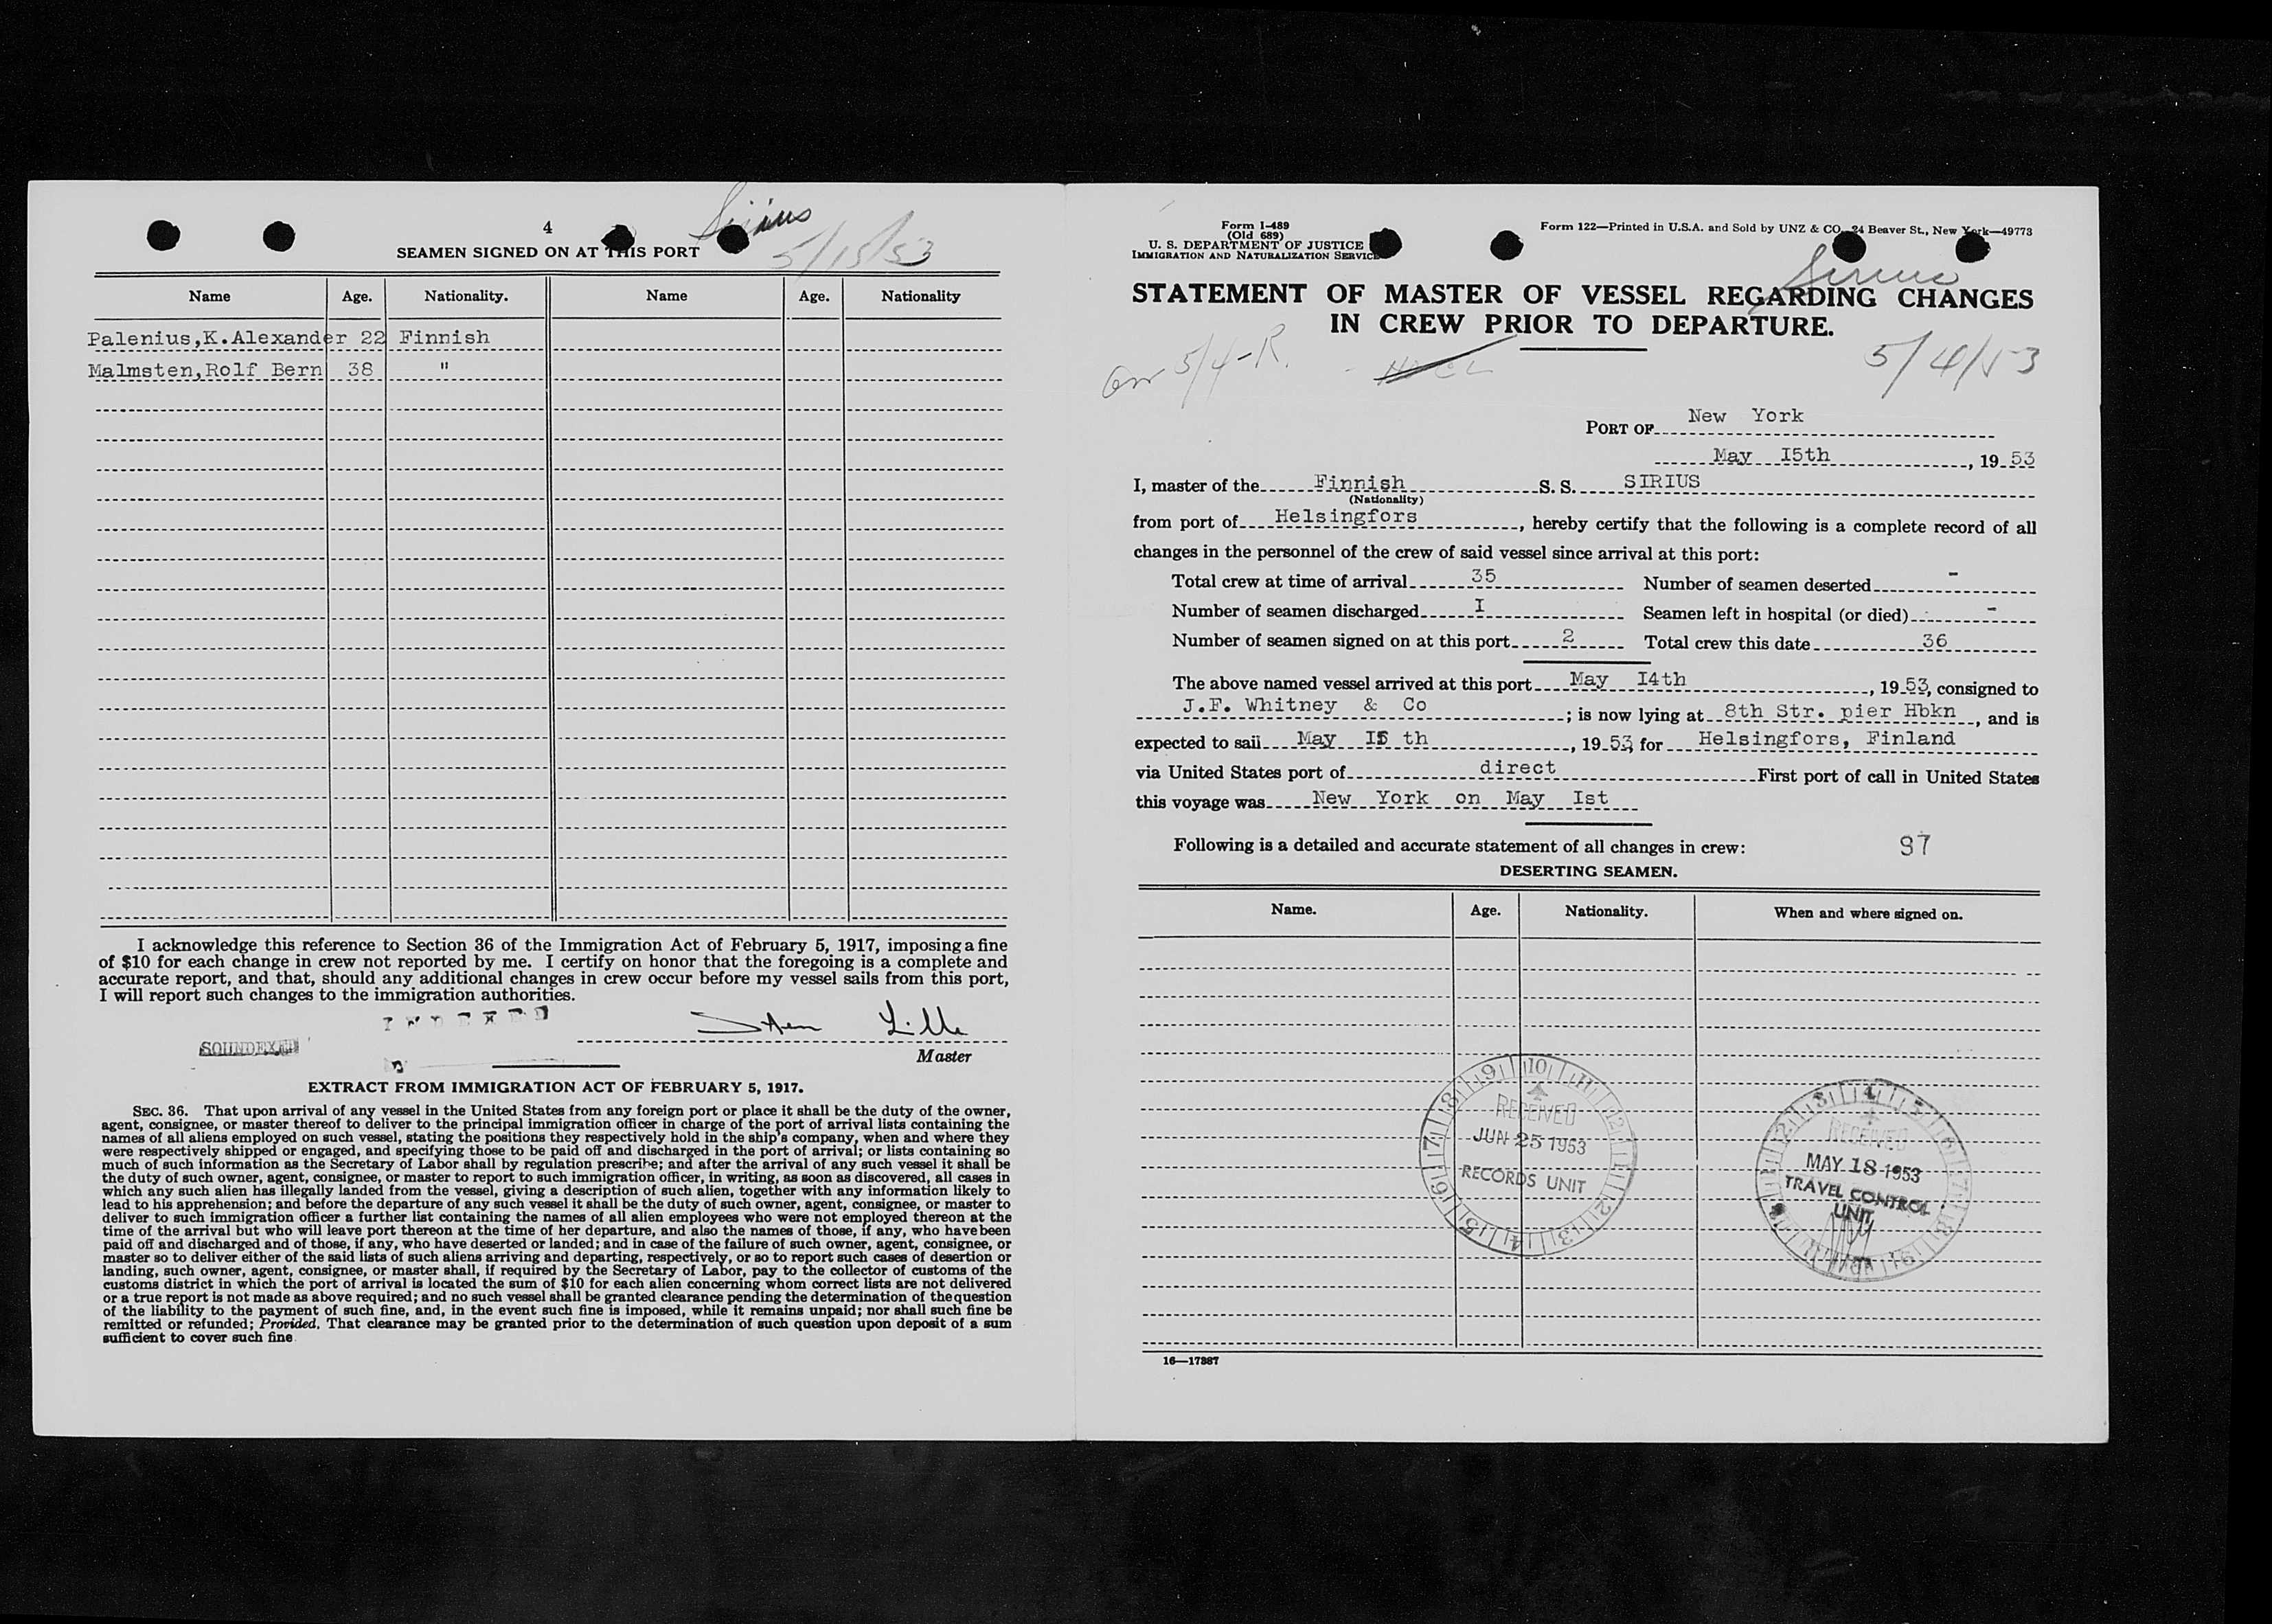 Sirius
5/15/53
4
SEAMEN SIGNED ON AT THIS PORT
Name Age. Nationality. Name Age. Nationality
Palenius,K.Alexander 22 Finnish
Malmsten,Rolf Bern 38 "
I acknowledge this reference to Section 36 of the Immigration Act of February 5, 1917, imposing a fine
of $10 for each change in crew not reported by me. I certify on honor that the foregoing is a complete and
accurate report, and that, should any additional changes in crew occur before my vessel sails from this port,
I will report such changes to the immigration authorities.
INDEXED
SOUNDEXED
Sten Lille
Master
EXTRACT FROM IMMIGRATION ACT OF FEBRUARY 5, 1917.
SEC. 36. That upon arrival of any vessel in the United States from any foreign port or place it shall be the duty of the owner,
agent, consignee, or master thereof to deliver to the principal immigration officer in charge of the port of arrival lists containing the
names of all aliens employed on such vessel, stating the positions they respectively hold in the ship's company, when and where they
were respectively shipped or engaged, and specifying those to be paid off and discharged in the port of arrival; or lists containing so
much of such information as the Secretary of Labor shall by regulation prescribe; and after the arrival of any such vessel it shall be
the duty of such owner, agent, consignee, or master to report to such immigration officer, in writing, as soon as discovered, all cases in
which any such alien has illegally landed from the vessel, giving a description of such alien, together with any information likely to
lead to his apprehension; and before the departure of any such vessel it shall be the duty of such owner, agent, consignee, or master to
deliver to such immigration officer a further list containing the names of all alien employees who were not employed thereon at the
time of the arrival but who will leave port thereon at the time of her departure, and also the names of those, if any, who have been
paid off and discharged and of those, if any, who have deserted or landed; and in case of the failure of such owner, agent, consignee, or
master so to deliver either of the said lists of such aliens arriving and departing, respectively, or so to report such cases of desertion or
landing, such owner, agent, consignee, or master shall, if required by the Secretary of Labor, pay to the collector of customs of the
customs district in which the port of arrival is located the sum of $10 for each alien concerning whom correct lists are not delivered
or a true report is not made as above required; and no such vessel shall be granted clearance pending the determination of the question
of the liability to the payment of such fine, and, in the event such fine is imposed, while it remains unpaid; nor shall such fine be
remitted or refunded; Provided, That clearance may be granted prior to the determination of such question upon deposit of a sum
sufficient to cover such fine
Form I-489
(Old 689)
U. S. DEPARTMENT OF JUSTICE
IMMIGRATION AND NATURALIZATION SERVICE
Form 122—Printed in U.S.A. and Sold by UNZ & CO., 24 Beaver St., New York—49773
Sirius
STATEMENT OF MASTER OF VESSEL REGARDING CHANGES
IN CREW PRIOR TO DEPARTURE.
5/4-R.
5/4/53
PORT OF New York
May I5th, 19 53
I, master of the Finnish S. S. SIRIUS
(Nationality)
from port of Helsingfors, hereby certify that the following is a complete record of all
changes in the personnel of the crew of said vessel since arrival at this port:
Total crew at time of arrival 35 Number of seamen deserted -
Number of seamen discharged I Seamen left in hospital (or died) -
Number of seamen signed on at this port 2 Total crew this date 36
The above named vessel arrived at this port May I4th, 19 53, consigned to
J.F. Whitney & Co; is now lying at 8th Str. pier Hbkn, and is
expected to sail May I5 th, 19 53, for Helsingfors, Finland
via United States port of direct First port of call in United States
this voyage was New York on May Ist
Following is a detailed and accurate statement of all changes in crew: 87
DESERTING SEAMEN.
Name. Age. Nationality. When and where signed on.
RECEIVED
JUN 25 1953
RECORDS UNIT
RECEIVED
MAY 18 1953
TRAVEL CONTROL
UNIT
16—17387